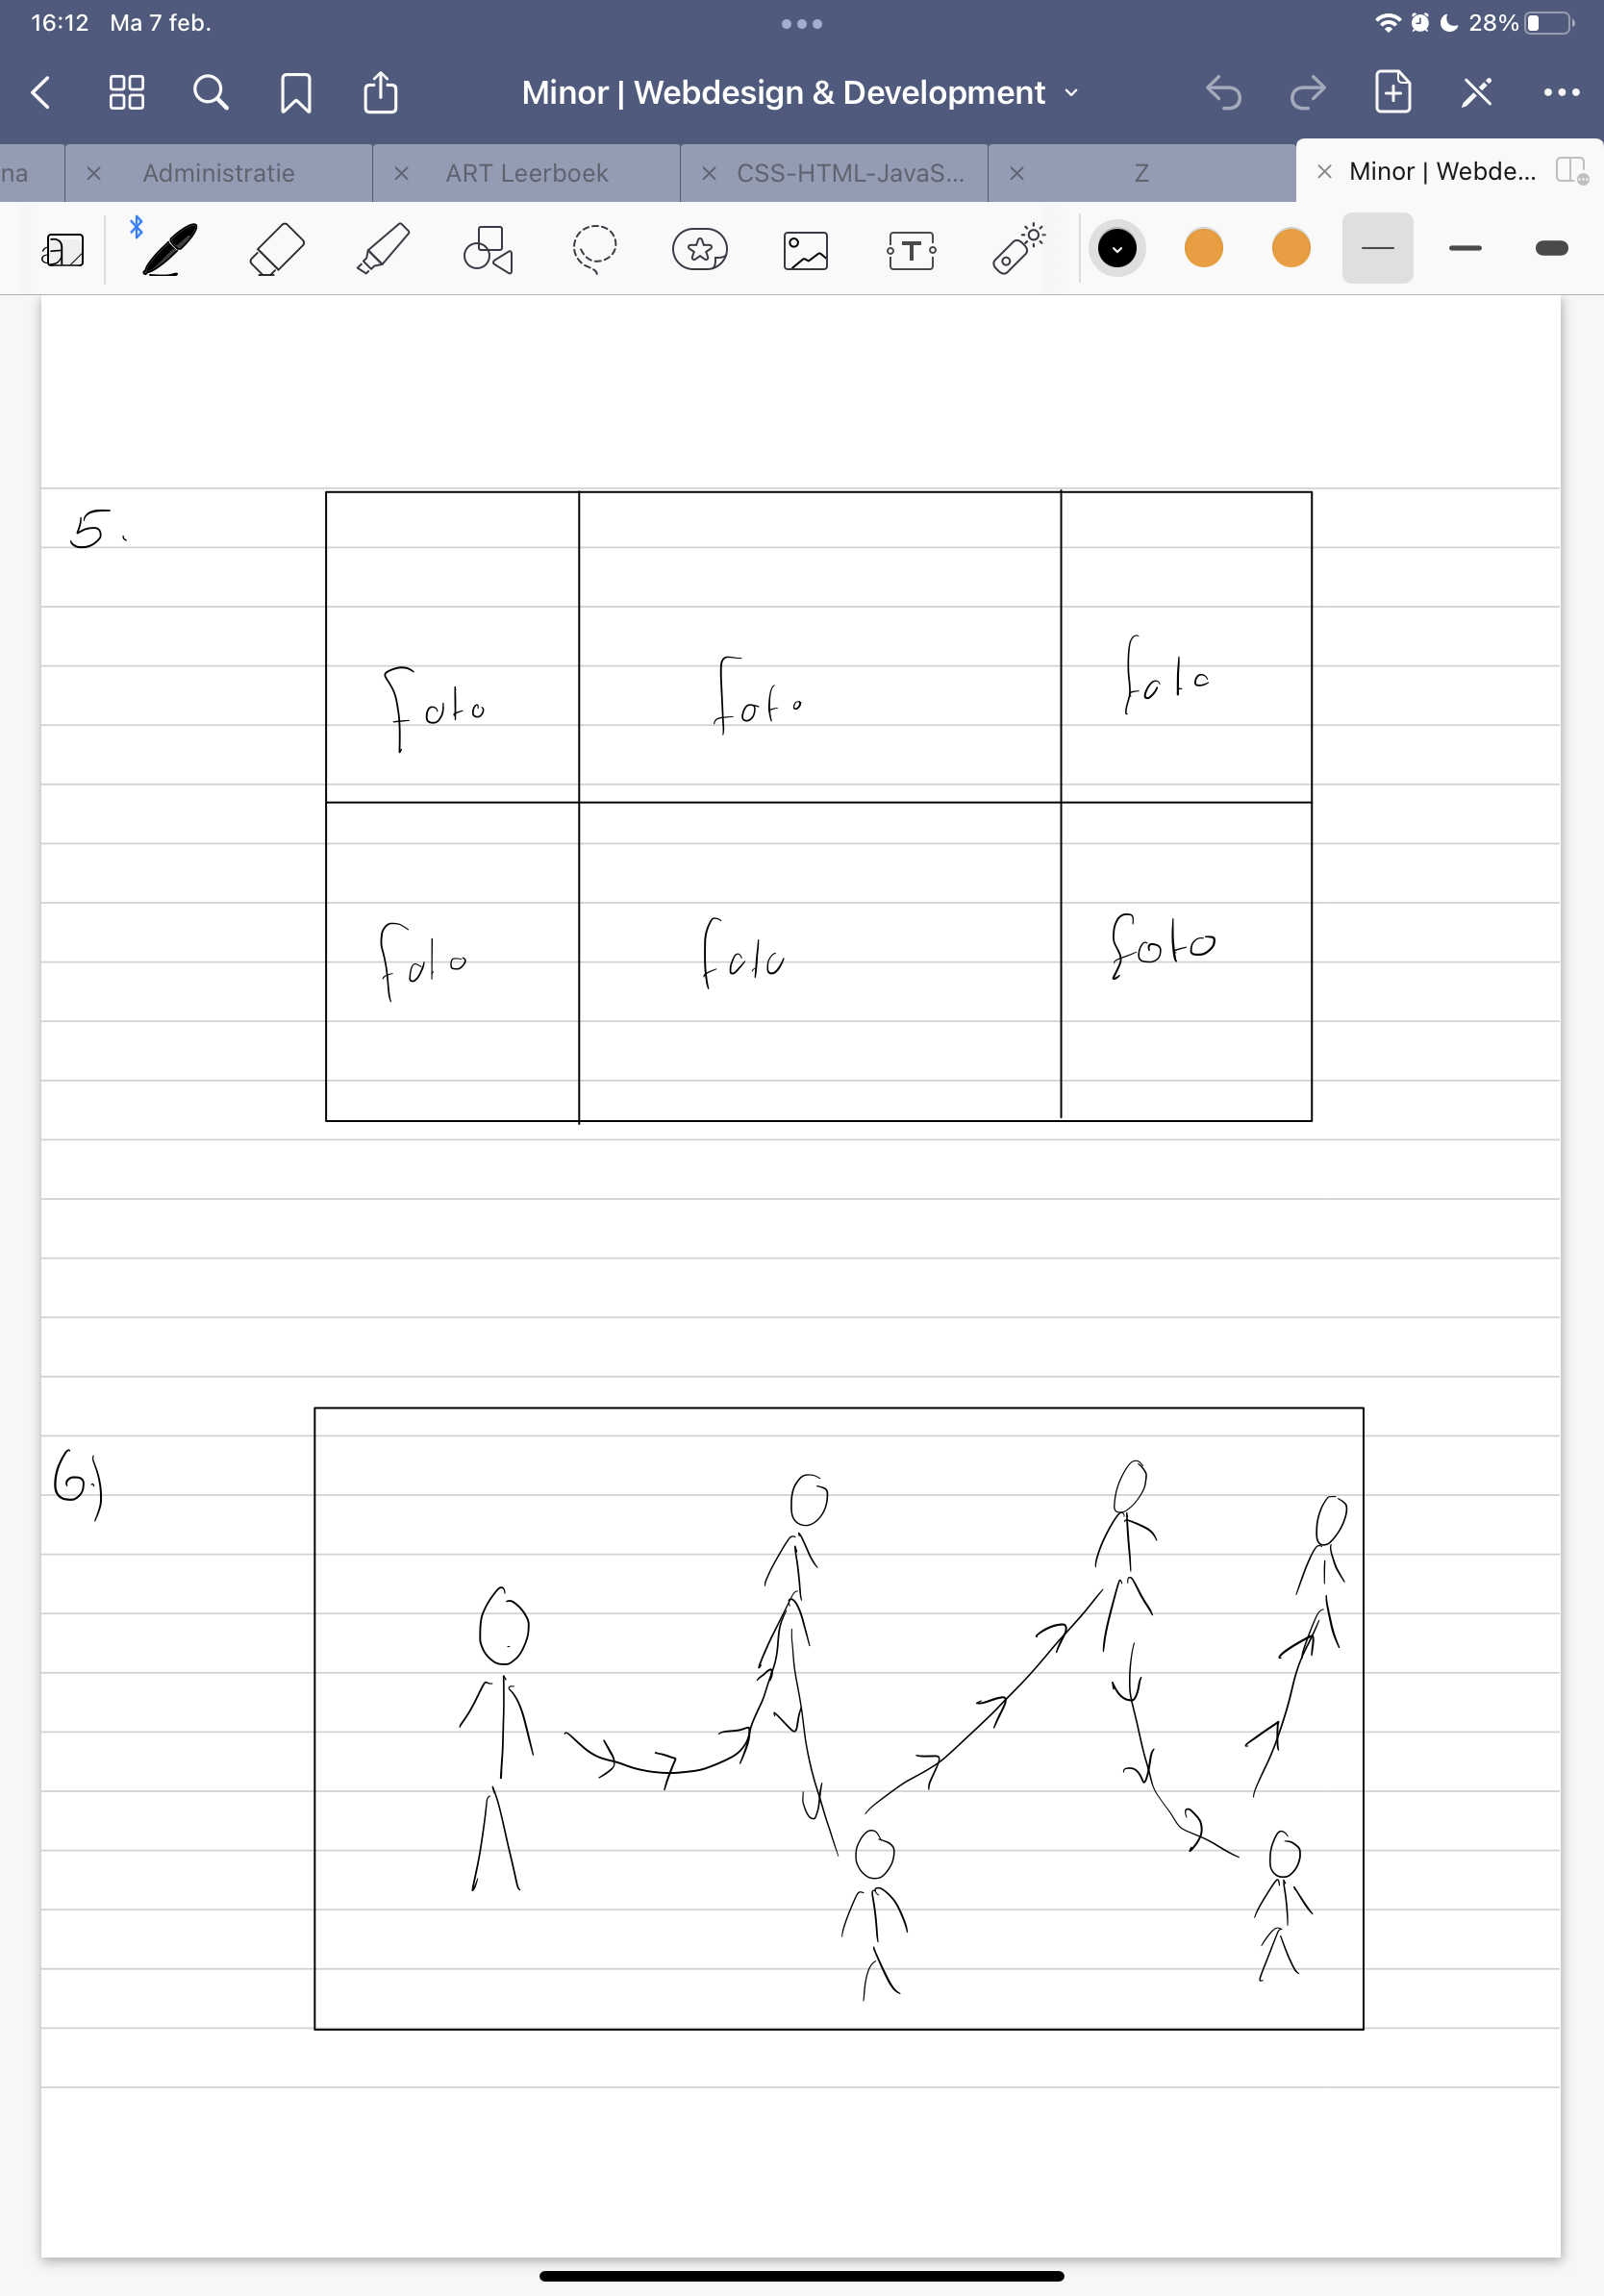 16:12 Ma 7 feb. 28%
Minor | Webdesign & Development
na Administratie ART Leerboek CSS-HTML-JavaS... Z Minor | Webde...
T
5.
foto foto foto
foto foto foto
6.)